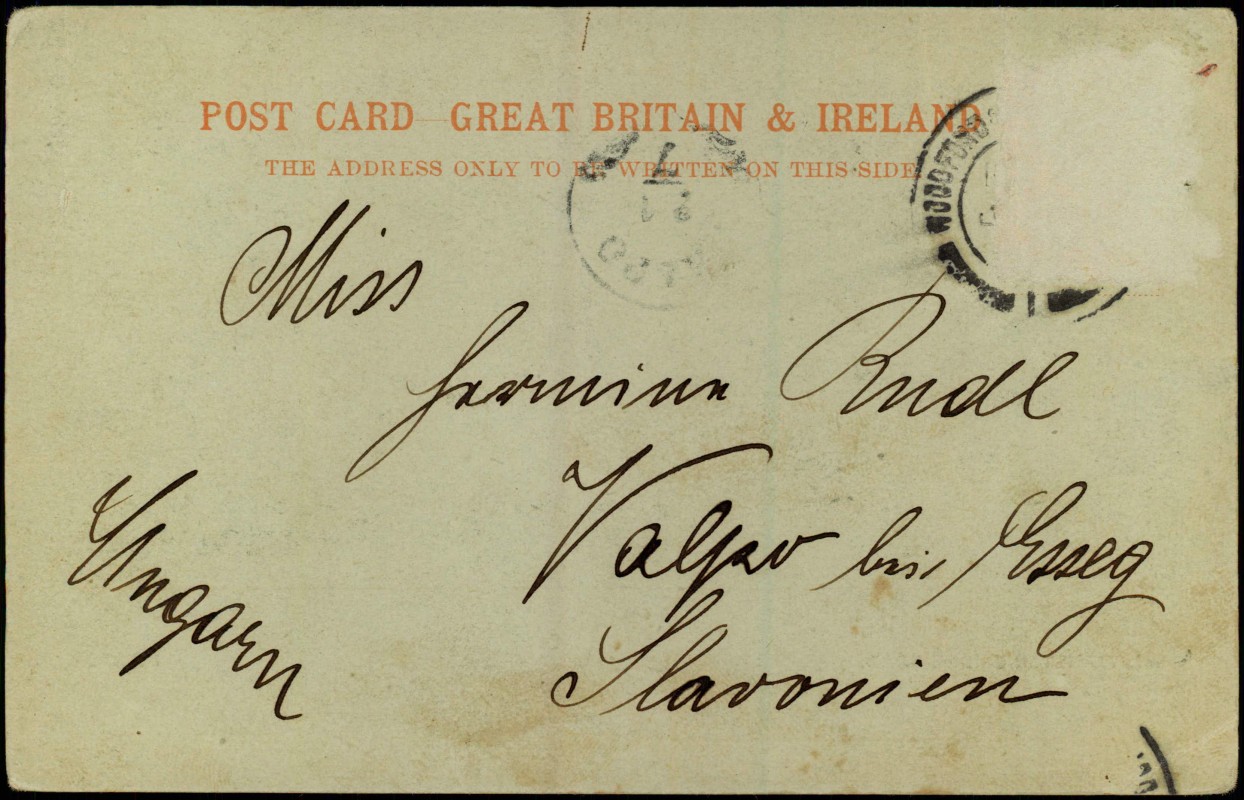 POST CARD GREAT BRITAIN & IRELAND
THE ADDRESS ONLY TO BE WRITTEN ON THIS SIDE
WOODFORD
Miss
Hermine Rudl
Valpo bei Esseg
Slavonien
Ungarn